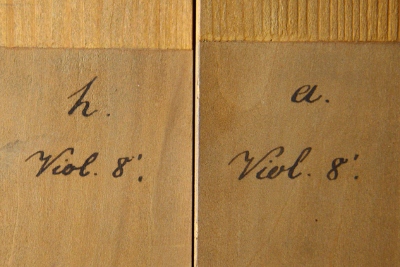 h.
Viol. 8'.
a.
Viol. 8'.